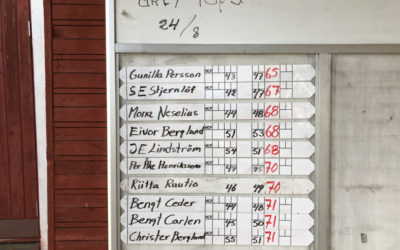 GREY TOPS
24/8
Gunilla Persson 43 47 65
SE Stjernlöf 42 47 67
Mona Neselius 44 48 68
Eivor Berglund 51 53 68
JE Lindström 54 51 68
Per Åke Henriksson 47 70
Riitta Rautio 46 49 70
Bengt Ceder 44 48 71
Bengt Carlen 45 50 71
Christer Berglund 55 51 71